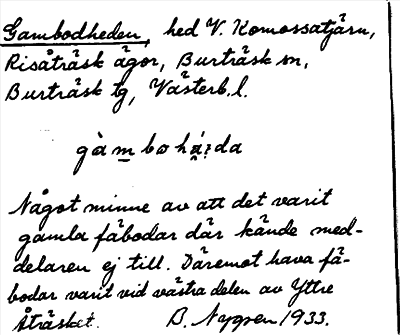 Gambodheden, hed V. Komossatjärn,
Risåträsk ägor, Burträsk sn,
Burträsk tg, Västerb. l.
gàmbohá̤:da
Något minne av att det varit
gamla fäbodar där kände med-
delaren ej till. Däremot hava fä-
bodar varit vid västra delen av Yttre
Åträsket. B. Nygren 1933.